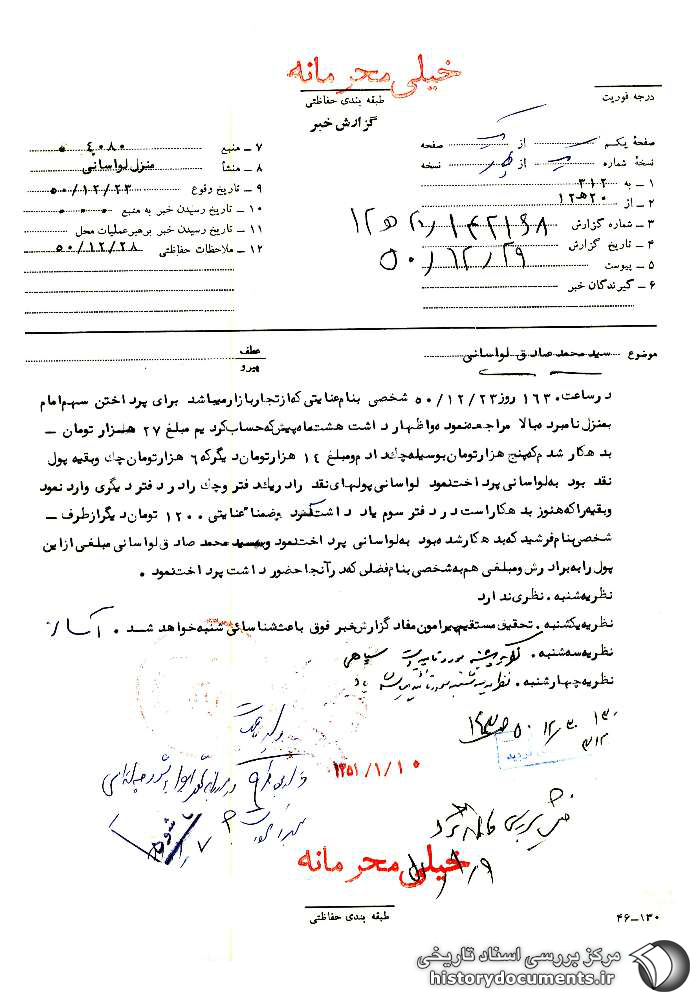 خیلی محرمانه
طبقه بندی حفاظتی
گزارش خبر
درجه فوریت
صفحهٔ یکم از صفحه
نسخهٔ شماره از نسخه
۱ ـ به ۳۱۲
۲ ـ از ۲۰ه۱۲
۳ ـ شماره گزارش
۴ ـ تاریخ گزارش ۵۰/۱۲/۲۹
۵ ـ پیوست
۶ ـ گیرندگان خبر
۷ ـ منبع ۴۰۸۰
۸ ـ منشأ منزل لواسانی
۹ ـ تاریخ وقوع ۵۰/۱۲/۲۳
۱۰ ـ تاریخ رسیدن خبر به منبع
۱۱ ـ تاریخ رسیدن خبر برهبر عملیات محل
۱۲ ـ ملاحظات حفاظتی ۵۰/۱۲/۲۸
موضوع سید محمد صادق لواسانی
عطف
پیرو
در ساعت ۱۶۳۰ روز ۵۰/۱۲/۲۳ شخصی بنام عنایتی که از تجار بازار میباشد برای پرداختن سهم امام
بمنزل نامبرده بالا مراجعه نموده و اظهار داشت هشت ماه پیش که حساب کردیم مبلغ ۲۷ هزار تومان ـ
بدهکار شدم که پنج هزار تومان بوسیله چک دادم و مبلغ ۱۴ هزار تومان دیگر که ۶ هزار تومان چک و بقیه پول
نقد بود به لواسانی پرداخت نمود لواسانی پولهای نقد را در یک دفتر و چک را در دفتر دیگری وارد نمود
و بقیه را که هنوز بدهکار است در دفتر سوم یادداشت نمود وضمنا عنایتی ۱۲۰۰ تومان دیگر از طرف ـ
شخصی بنام فرشید که بدهکار شده بود به لواسانی پرداخت نمود و سید محمد صادق لواسانی مبلغی از این
پول را به برادرش و مبلغی هم به شخصی بنام فضلی که در آنجا حضور داشت پرداخت نمود .
نظریه شنبه . نظری ندارد
نظریه یکشنبه . تحقیق مستقیم پیرامون مفاد گزارش خبر فوق باعث شناسائی شنبه خواهد شد .
نظریه سه شنبه . نظریه یکشنبه مورد تایید است
نظریه چهارشنبه . نظریه سه شنبه مورد تائید است
۱۳۵۱/۱/۱۰
خیلی محرمانه
طبقه بندی حفاظتی
۴۶ـ۱۳۰
مرکز بررسی اسناد تاریخی
historydocuments.ir